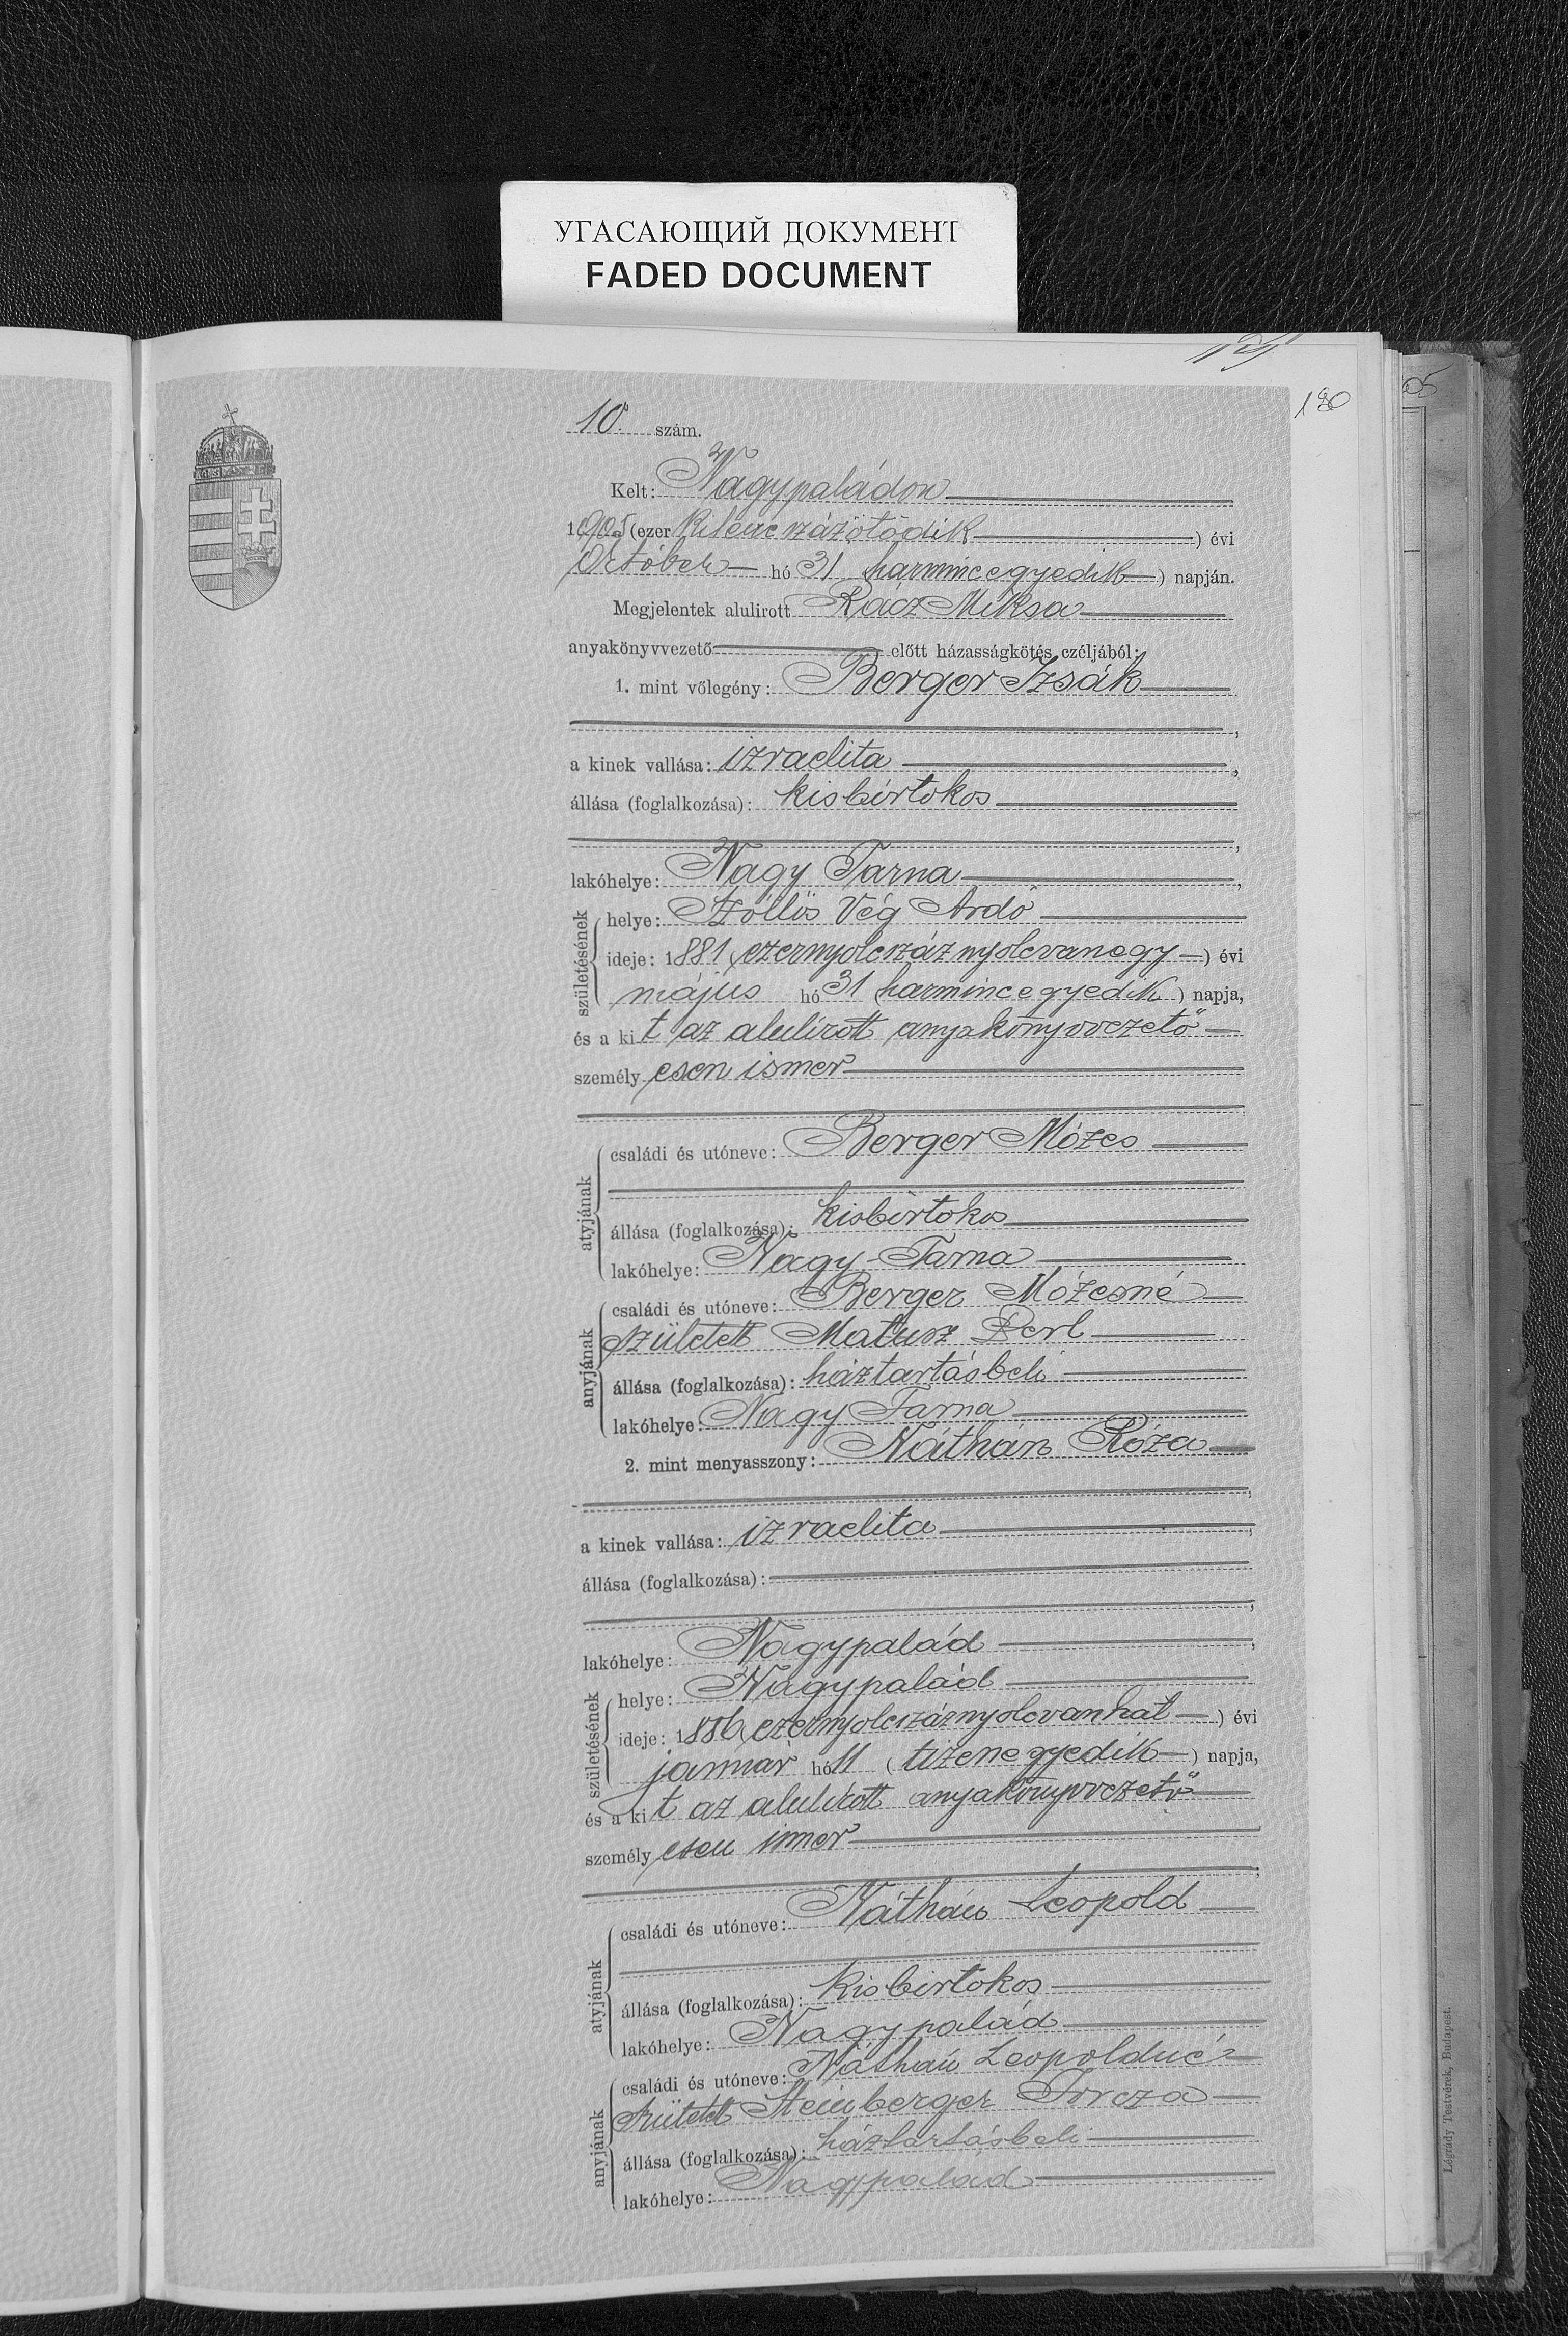 УГАСАЮЩИЙ ДОКУМЕНТ
FADED DOCUMENT
130
05
10. szám.
Kelt: Nagypaládon
1905 (ezer kilenczázötödik) évi
Október hó 31 harmincegyedik) napján.
Megjelentek alulirott Rácz Miksa
anyakönyvvezető előtt házasságkötés czéljából:
1. mint vőlegény: Berger Izsák
a kinek vallása: izraelita,
állása (foglalkozása): kisbirtokos
lakóhelye: Nagy Tarna,
születésének
helye: Szőllős Vég Ardó
ideje: 1881 (ezernyolczáz nyolcvanegy) évi
május hó 31 (harmincegyedik) napja,
és a kit az alulírott anyakönyvvezető
személyesen ismer
atyjának
családi és utóneve: Berger Mózes
állása (foglalkozása): kisbirtokos
lakóhelye: Nagy-Tarna
anyjának
családi és utóneve: Berger Mózesné
született Matusz Perl
állása (foglalkozása): háztartásbeli
lakóhelye: Nagy Tarna
2. mint menyasszony: Náthán Róza
a kinek vallása: izraelita
állása (foglalkozása):
lakóhelye: Nagypalád
születésének
helye: Nagypalád
ideje: 1886 (ezernyolczáznyolcvanhat) évi
január hó 11 (tizenegyedik) napja,
és a kit az alulírott anyakönyvvezető
személyesen ismer
atyjának
családi és utóneve: Náthán Leopold
állása (foglalkozása): kisbirtokos
lakóhelye: Nagypalád
anyjának
családi és utóneve: Náthán Leopoldné
született Steinberger
állása (foglalkozása): háztartásbeli
lakóhelye: Nagypalád
Légrády Testvérek, Budapest.